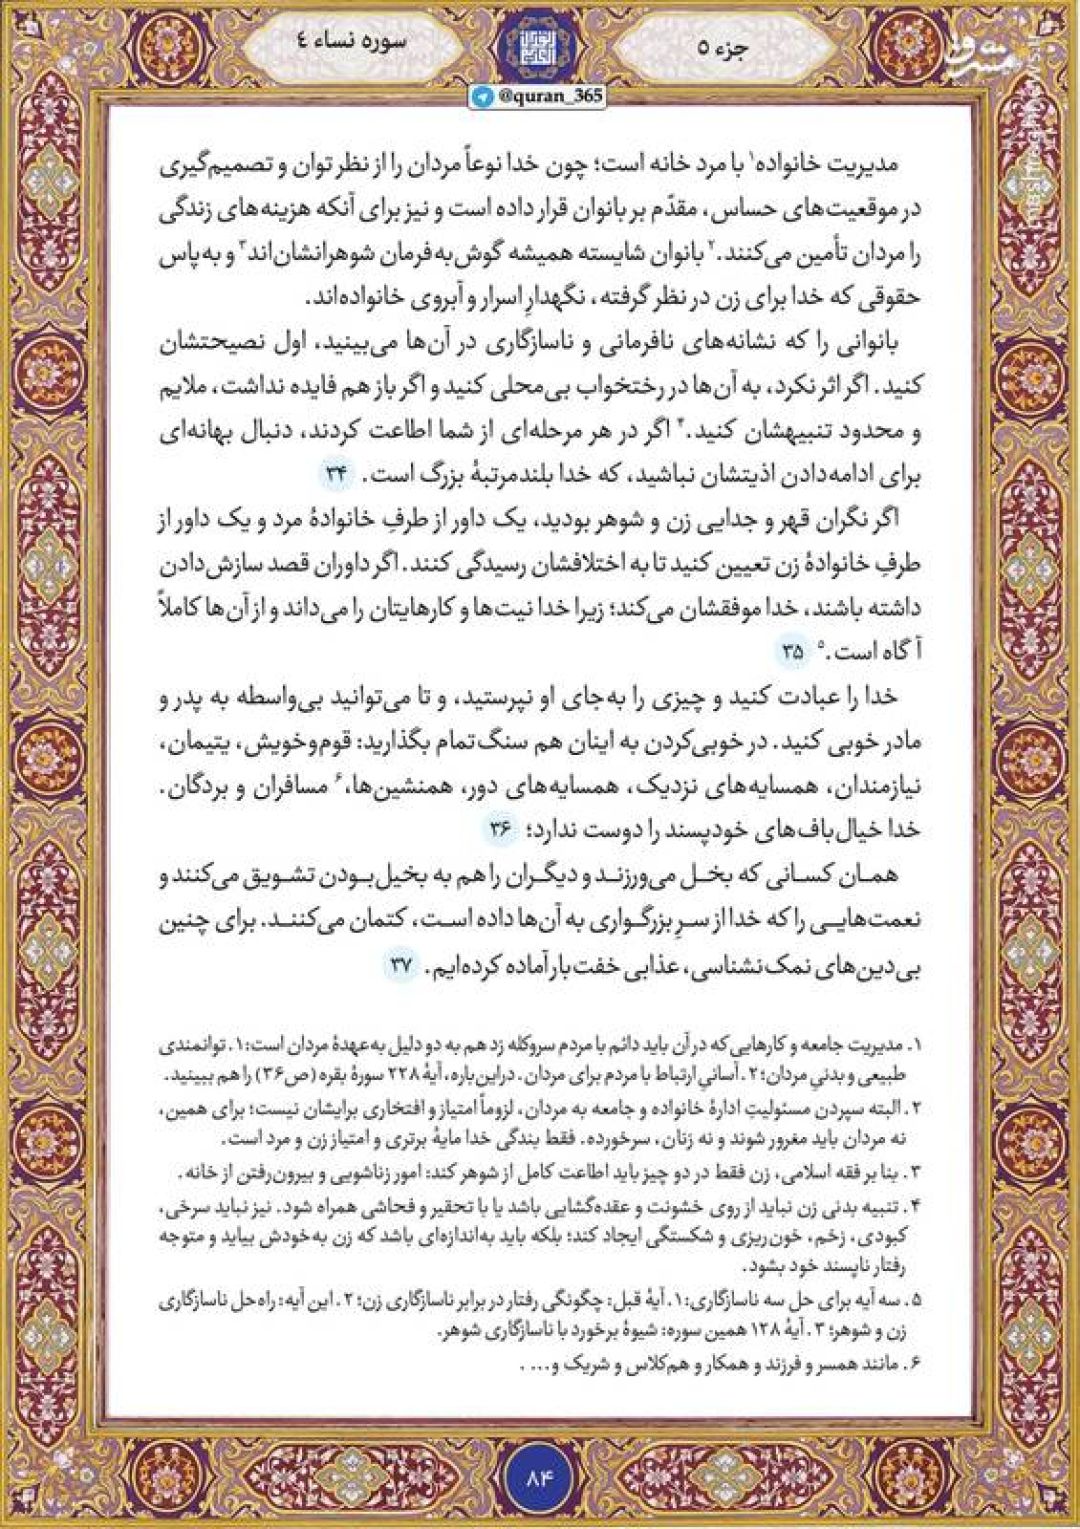 جزء ۵
سوره نساء ۴
مشرق
mashreghnews.ir
@quran_365
مدیریت خانواده۱ با مرد خانه است؛ چون خدا نوعاً مردان را از نظر توان و تصمیم‌گیری
در موقعیت‌های حساس، مقدّم بر بانوان قرار داده است و نیز برای آنکه هزینه‌های زندگی
را مردان تأمین می‌کنند.۲ بانوان شایسته همیشه گوش‌به‌فرمان شوهرانشان‌اند۳ و به‌پاس
حقوقی که خدا برای زن در نظر گرفته، نگهدارِ اسرار و آبروی خانواده‌اند.
بانوانی را که نشانه‌های نافرمانی و ناسازگاری در آن‌ها می‌بینید، اول نصیحتشان
کنید. اگر اثر نکرد، به آن‌ها در رختخواب بی‌محلی کنید و اگر باز هم فایده نداشت، ملایم
و محدود تنبیهشان کنید.۴ اگر در هر مرحله‌ای از شما اطاعت کردند، دنبال بهانه‌ای
برای ادامه‌دادن اذیتشان نباشید، که خدا بلندمرتبهٔ بزرگ است. ۳۴
اگر نگران قهر و جدایی زن و شوهر بودید، یک داور از طرفِ خانوادهٔ مرد و یک داور از
طرفِ خانوادهٔ زن تعیین کنید تا به اختلافشان رسیدگی کنند. اگر داوران قصد سازش‌دادن
داشته باشند، خدا موفقشان می‌کند؛ زیرا خدا نیت‌ها و کارهایتان را می‌داند و از آن‌ها کاملاً
آگاه است.۵ ۳۵
خدا را عبادت کنید و چیزی را به‌جای او نپرستید، و تا می‌توانید بی‌واسطه به پدر و
مادر خوبی کنید. در خوبی‌کردن به اینان هم سنگ‌تمام بگذارید: قوم‌وخویش، یتیمان،
نیازمندان، همسایه‌های نزدیک، همسایه‌های دور، همنشین‌ها،۶ مسافران و بردگان.
خدا خیال‌باف‌های خودپسند را دوست ندارد؛ ۳۶
همان کسانی که بخل می‌ورزند و دیگران را هم به بخیل‌بودن تشویق می‌کنند و
نعمت‌هایی را که خدا از سرِ بزرگواری به آن‌ها داده است، کتمان می‌کنند. برای چنین
بی‌دین‌های نمک‌نشناسی، عذابی خفت‌بار آماده کرده‌ایم. ۳۷
۱. مدیریت جامعه و کارهایی که در آن باید دائم با مردم سروکله زد هم به دو دلیل به‌عهدهٔ مردان است: ۱. توانمندی
طبیعی و بدنیِ مردان؛ ۲. آسانیِ ارتباط با مردم برای مردان. دراین‌باره، آیهٔ ۲۲۸ سورهٔ بقره (ص۳۶) را هم ببینید.
۲. البته سپردن مسئولیتِ ادارهٔ خانواده و جامعه به مردان، لزوماً امتیاز و افتخاری برایشان نیست؛ برای همین،
نه مردان باید مغرور شوند و نه زنان، سرخورده. فقط بندگی خدا مایهٔ برتری و امتیاز زن و مرد است.
۳. بنا بر فقه اسلامی، زن فقط در دو چیز باید اطاعت کامل از شوهر کند: امور زناشویی و بیرون‌رفتن از خانه.
۴. تنبیه بدنی زن نباید از روی خشونت و عقده‌گشایی باشد یا با تحقیر و فحاشی همراه شود. نیز نباید سرخی،
کبودی، زخم، خون‌ریزی و شکستگی ایجاد کند؛ بلکه باید به‌اندازه‌ای باشد که زن به‌خودش بیاید و متوجه
رفتار ناپسند خود بشود.
۵. سه آیه برای حل سه ناسازگاری: ۱. آیهٔ قبل: چگونگی رفتار در برابر ناسازگاری زن؛ ۲. این آیه: راه‌حل ناسازگاری
زن و شوهر؛ ۳. آیهٔ ۱۲۸ همین سوره: شیوهٔ برخورد با ناسازگاری شوهر.
۶. مانند همسر و فرزند و همکار و هم‌کلاس و شریک و... .
۸۴